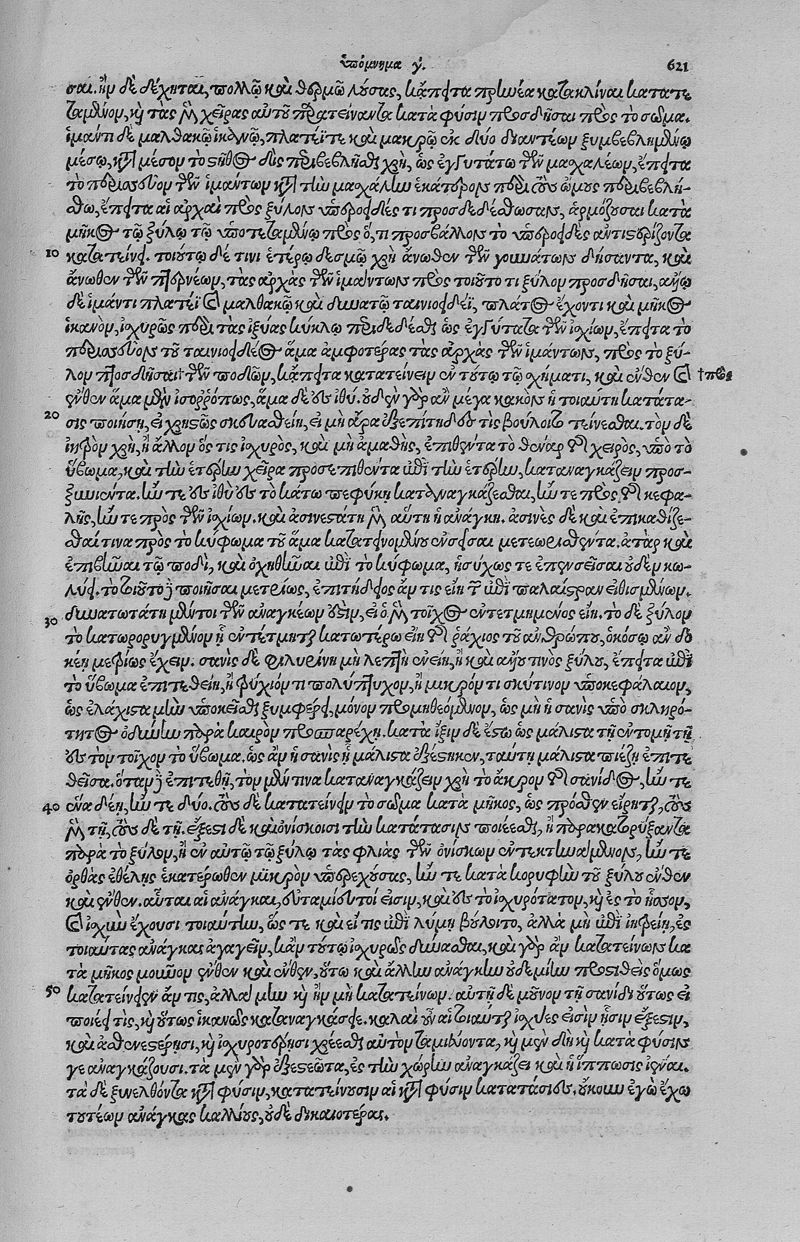 ὑπόμνημα γ. 621
σαι. ἢν δὲ δέχηται, πολλῷ καὶ θερμῷ λούσας, κἄπειτα πρηνέα κατακλίναι κατατε
ταμένον, καὶ τὰς μὲν χεῖρας αὐτοῦ παρατείναντα κατὰ φύσιν προσδῆσαι πρὸς τὸ σῶμα.
ἱμάντι δὲ μαλθακῷ ἱκανῶ, πλατεῖ τε καὶ μακρῷ ἐκ δύο διαντέων ξυμβεβλημένῳ
μέσῳ, κατὰ μέσον τὸ στῆθος δὶς περιβεβλῆσθαι χρὴ, ὡς ἐγγυτάτω τῶν μασχαλέων, ἔπειτα
τὸ περισσεῦον τῶν ἱμάντων κατὰ τὴν μασχάλην ἑκάτερον περὶ τοὺς ὤμους περιβεβλή-
σθω, ἔπειτα αἱ ἀρχαὶ πρὸς ξύλον ὑπεροειδές τι προσδεδέσθωσαν, ἁρμόζουσαι κατὰ
μῆκος τῷ ξύλῳ τῷ ὑποτεταμένῳ πρὸς ὅ, τι προσβάλλον τὸ ὑπεροειδὲς ἀντιστηρίζοντα
10 κατατείνειν. τοιούτῳ δέ τινι ἑτέρῳ δεσμῷ χρὴ ἄνωθεν τῶν γουνάτων δήσαντα, καὶ
ἄνωθεν τῶν πτερνέων, τὰς ἀρχὰς τῶν ἱμάντων πρὸς τοιοῦτό τι ξύλον προσδῆσαι, ἄλλῳ
δὲ ἱμάντι πλατεῖ καὶ μαλθακῷ καὶ δυνατῷ ταινιοειδεῖ, πλάτος ἔχοντι καὶ μῆκος
ἱκανὸν, ἰσχυρῶς περὶ τὰς ἰξύας κύκλῳ περιδεδέσθαι ὡς ἐγγύτατα τῶν ἰσχίων, ἔπειτα τὸ
περισσεῦον τοῦ ταινιοειδέος ἅμα ἀμφοτέρας τὰς ἀρχὰς τῶν ἱμάντων, πρὸς τὸ ξύ-
λον προσδῆσαι † τῶν ποδῶν, κἄπειτα κατατείνειν ἐν τούτῳ τῷ σχήματι, καὶ ἔνθεν καὶ †πρὸς
ἔνθεν ἅμα μὲν ἰσορρόπως, ἅμα δὲ ἐς ἰθύ. οὐδὲν γὰρ ἂν μέγα κακὸν ἡ τοιαύτη κατάτα-
20 σις ποιήσῃ, εἰ χρηστῶς σκευασθείη, εἰ μὴ ἄρα ἐξεπίτηδές τις βούλοιτο σίνεσθαι. τὸν δὲ
ἰητρὸν χρὴ, ἢ ἄλλον ὅς τις ἰσχυρὸς, καὶ μὴ ἀμαθὴς, ἐπιθέντα τὸ θέναρ τῆς χειρὸς, ὑπὸ τὸ
ὕβωμα, καὶ τὴν ἑτέρην χεῖρα προσεπιθέντα ἐπὶ τὴν ἑτέρην, καταναγκάζειν προσ-
ξυνιέντα. ἤν τε ἐς ἰθὺς ἐς τὸ κάτω πεφύκῃ καταναγκάζεσθαι, ἤν τε πρὸς τῆς κεφα-
λῆς, ἤν τε πρὸς τῶν ἰσχίων. καὶ ἀσινεστάτη μὲν αὕτη ἡ ἀνάγκη. ἀσινὲς δὲ καὶ ἐπικαθίζε-
σθαί τινα πρὸς τὸ κύφωμα τοῦ ἅμα κατατεινομένου ἐνσεῖσαι μετεωρισθέντα. ἀτὰρ καὶ
ἐπιβῆναι τῷ ποδὶ, καὶ ὀχηθῆναι ἐπὶ τὸ κύφωμα, ἡσύχως τε ἐπενσεῖσαι οὐδὲν κω-
λύει. τὸ τοιοῦτον δὲ ποιῆσαι μετρίως, ἐπιτήδειος ἄν τις εἴη τῶν ἐπὶ παλαίστραν εἰθισμένων.
δυνατωτάτη μέντοι τῶν ἀναγκέων ἐστὶν, εἰ ὁ μὲν τοῖχος ἐντετμημένος εἴη. τὸ δὲ ξύλον
30 τὸ κατωρορυγμένον ᾗ ἐντέτμηται κατωτέρω εἴη τῆς ῥάχιος τοῦ ἀνθρώπου, ὁκόσῳ ἂν δο
κέῃ μετρίως ἔχειν. σανὶς δὲ φιλυρίνη μὴ λεπτὴ ἐνείη, ἢ καὶ ἄλλου τινὸς ξύλου, ἔπειτα ἐπὶ
τὸ ὕβωμα ἐπιτεθείη, ἢ τρύχιόν τι πολύπτυχον, ἢ μικρόν τι σκύτινον ὑποκεφάλαιον,
ὡς ἐλάχιστα μὴν ὑποκεῖσθαι ξυμφέρει, μόνον προμηθεόμενον, ὡς μὴ ἡ σανὶς ὑπὸ σκληρό-
τητος ὀδύνην παρὰ καιρὸν προσπαρέχῃ. κατὰ ἴξιν δὲ ἔστω ὡς μάλιστα τῇ ἐντομῇ τῇ
ἐς τὸν τοῖχον τὸ ὕβωμα. ὡς ἂν ἡ σανὶς ᾗ μάλιστα ἐξέστηκεν, ταύτῃ μάλιστα πιέζῃ ἐπιτε
θεῖσα. ὅταν δὲ ἐπιτεθῇ, τὸν μέν τινα καταναγκάζειν χρὴ τὸ ἄκρον τῆς σανίδος, ἤν τε
40 ἕνα δέῃ, ἤν τε δύο. τοὺς δὲ κατατείνειν τὸ σῶμα κατὰ μῆκος, ὡς πρόσθεν εἴρηται, τοὺς
μὲν τῇ, τοὺς δὲ τῇ. ἔξεστι δὲ καὶ ὀνίσκοισι τὴν κατάτασιν ποιέεσθαι, ἢ παρακατορύξαντα
παρὰ τὸ ξύλον, ἢ ἐν αὐτῷ τῷ ξύλῳ τὰς φλιὰς τῶν ὀνίσκων ἐντεκτηνάμενον, ἤν τε
ὀρθὰς ἐθέλῃς ἑκατέρωθεν μικρὸν ὑπερεχούσας, ἤν τε κατὰ κορυφὴν τοῦ ξύλου ἔνθεν
καὶ ἔνθεν. αὗται αἱ ἀνάγκαι, εὐταμίευτοί εἰσιν, καὶ ἐς τὸ ἰσχυρότατον, καὶ ἐς τὸ ἧσσον,
καὶ ἰσχὺν ἔχουσι τοιαύτην, ὥς τε καὶ εἴ τις ἐπὶ λύμῃ βούλοιτο, ἀλλὰ μὴ ἐπὶ ἰητρείῃ, ἐς
τοιαύτας ἀνάγκας ἀγαγεῖν, κἂν τούτῳ ἰσχυρῶς δύνασθαι, καὶ γὰρ ἂν κατατείνων κα
τὰ μῆκος μοῦνον ἔνθεν καὶ ἔνθεν, οὕτω καὶ ἄλλην ἀνάγκην οὐδεμίην προστιθεὶς ὅμως
50 κατατείνειεν ἄν τις, ἀλλὰ μὴν καὶ ἢν μὴ κατατείνων. αὐτῇ δὲ μοῦνον τῇ σανίδι οὕτως εἰ
ποιέει τις, καὶ οὕτως ἱκανῶς καταναγκάσειε. καλαὶ οὖν αἱ τοιαῦται ἰσχύες εἰσὶν ᾗσιν ἔξεστιν,
καὶ ἀσθενεστέρῃσι, καὶ ἰσχυροτέρῃσι χρέεσθαι αὐτὸν ταμιεύοντα, καὶ μὲν δὴ καὶ κατὰ φύσιν
γε ἀναγκάζουσι. τὰ μὲν γὰρ ἐξεστεῶτα, ἐς τὴν χώρην ἀναγκάζει καὶ ἡ ἵππωσις ἰέναι.
τὰ δὲ ξυνελθόντα κατὰ φύσιν, κατατείνουσιν αἱ κατὰ φύσιν κατατάσιες. οὔκουν ἐγὼ ἔχω
τουτέων ἀνάγκας καλλίους, οὐδὲ δικαιοτέρας.